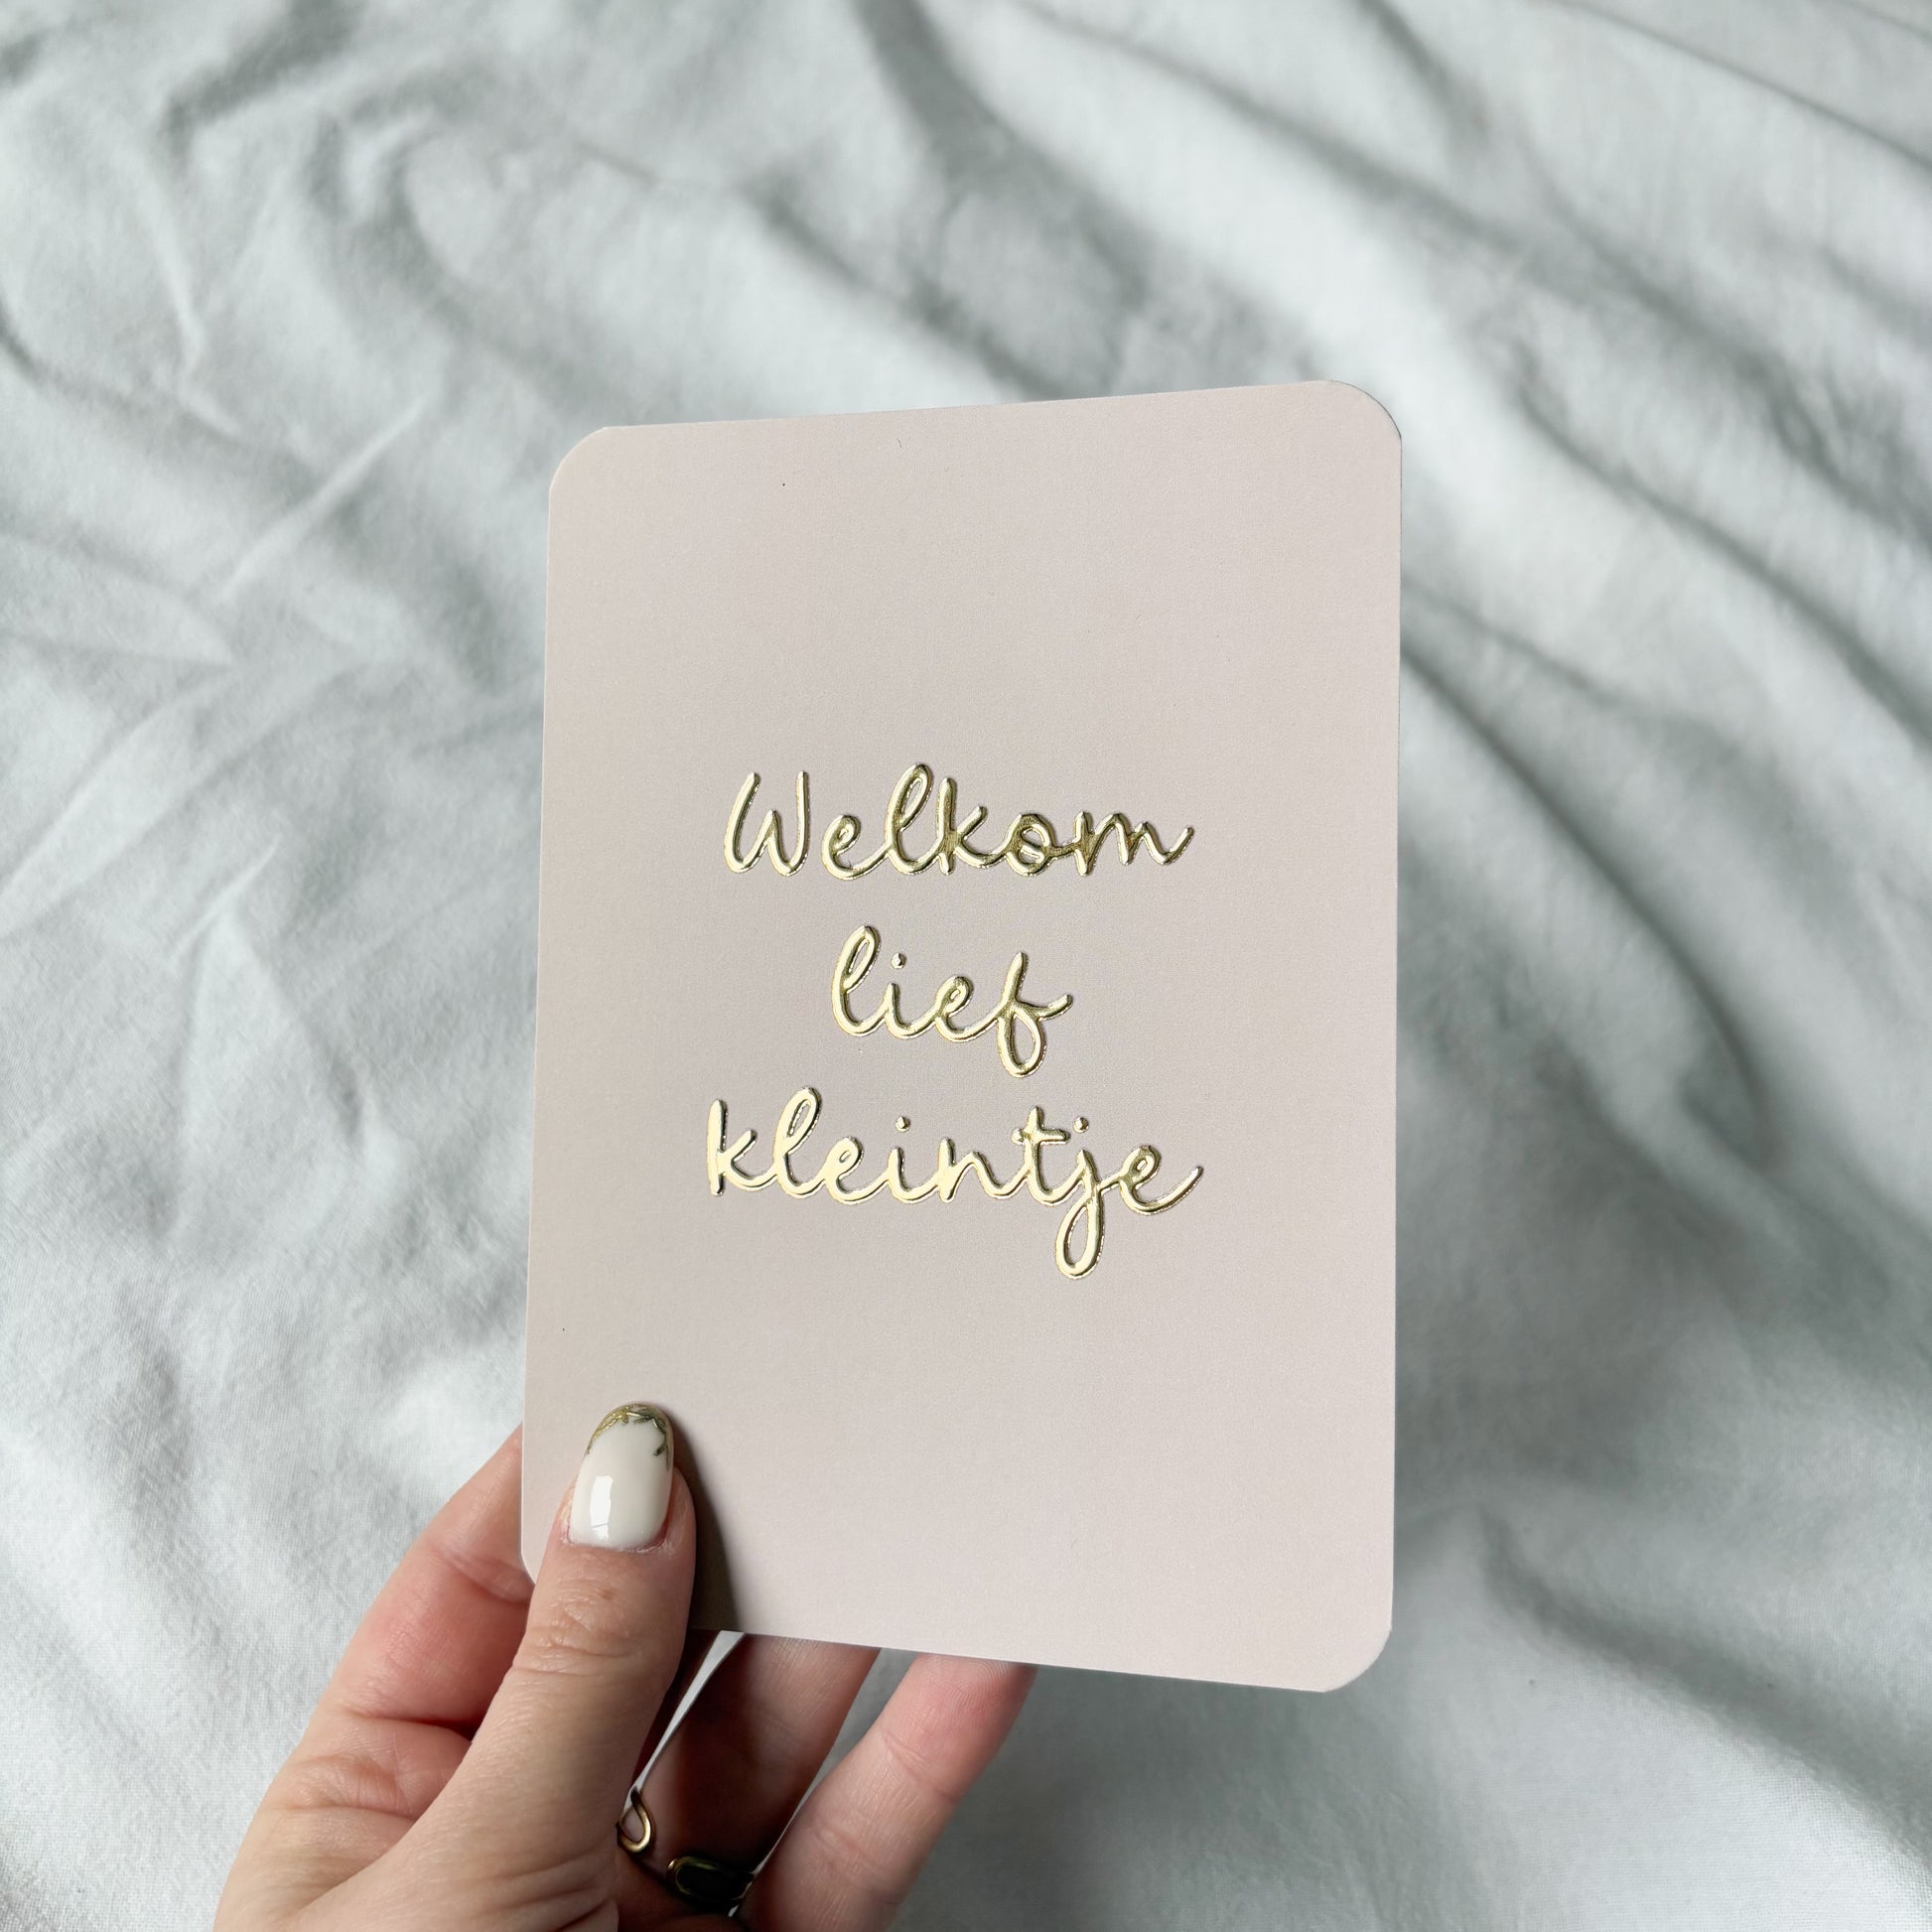 Welkom
lief
kleintje